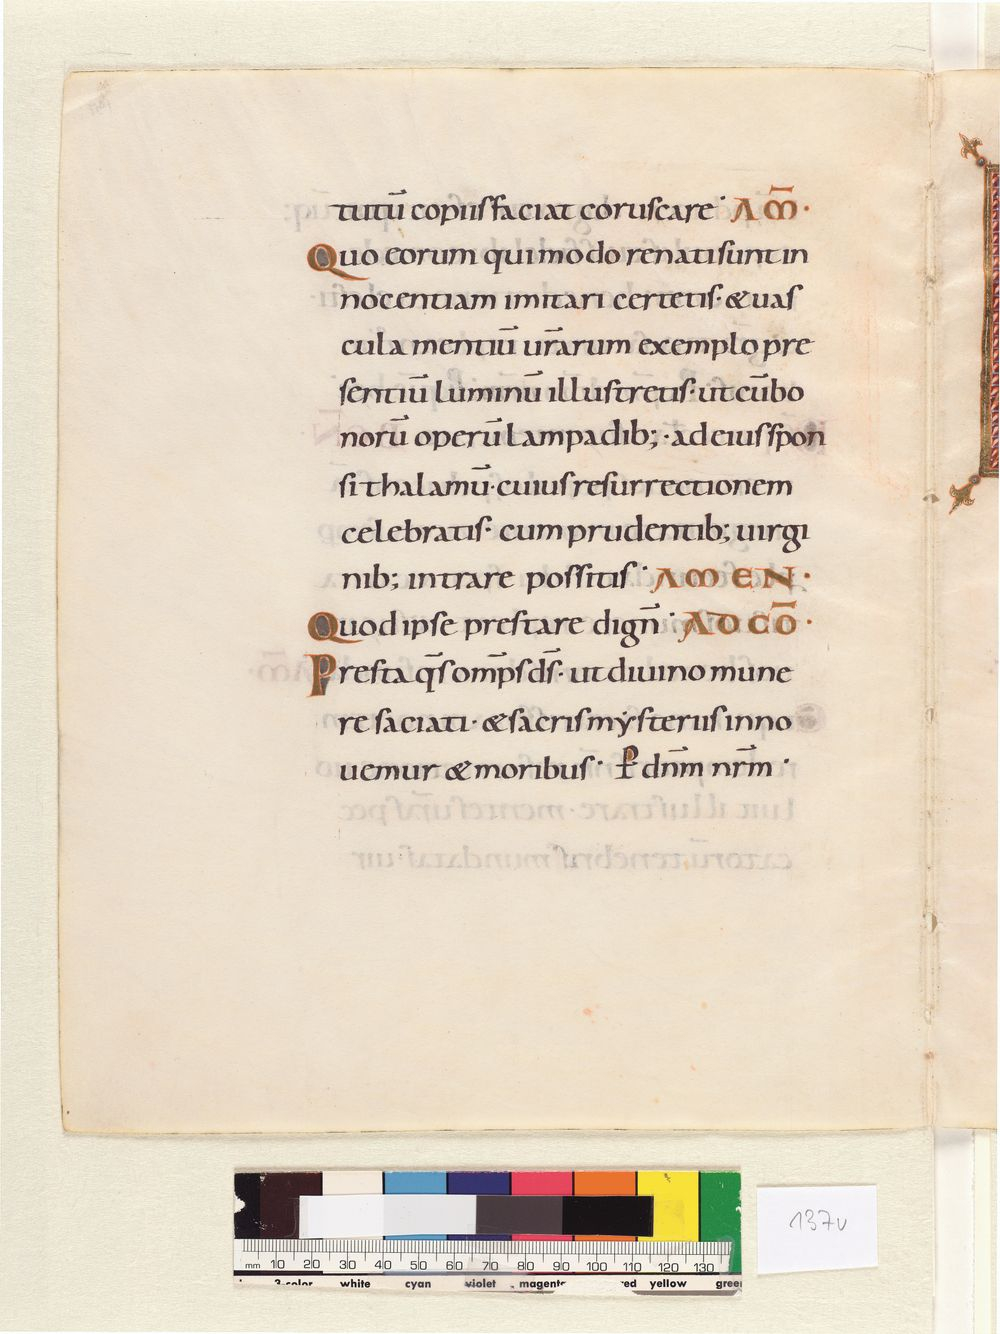 tutū copiis faciat coruscare· AM̄·
Quo eorum qui modo renati sunt in
nocentiam imitari certetis· & uas
cula mentiū ur̄arum exemplo pre
sentiū luminū illustretis· ut cū bo
norū operū lampadib;· ad eius spon
si thalamū· cuius resurrectionem
celebratis· cum prudentib; uirgi
nib; intrare possitis· AMEN·
Quod ipse prestare dign̄· AD CŌ·
Presta q̄s omp̄s d̄s· ut diuino mune
re saciati· & sacris mẏsteriis inno
uemur & moribus· P dn̄m nr̄m·
137v
mm 10 20 30 40 50 60 70 80 90 100 110 120 130
3-color white cyan violet magenta red yellow green